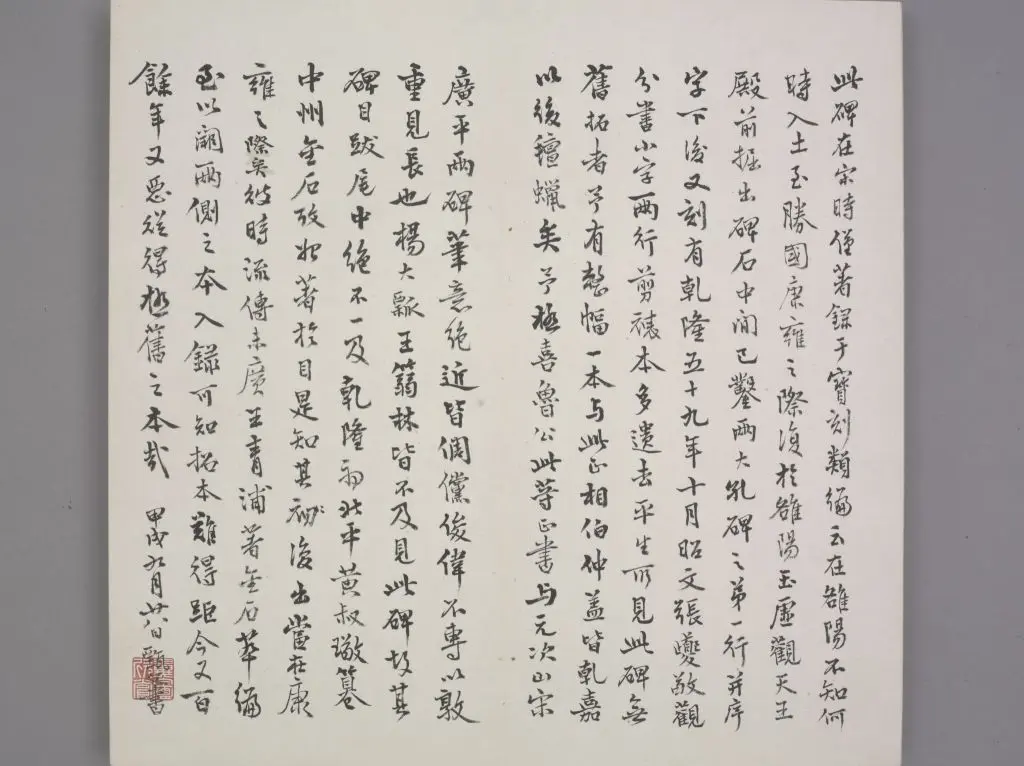 此碑在宋時僅著錄于寶刻類編云在雒陽不知何
時入土至勝國康雍之際復於雒陽玉虛觀天王
殿前掘出碑石中間已鑿兩大孔碑之第一行并序
字下後又刻有乾隆五十九年十月昭文張燮敬觀
分書小字兩行剪裱本多遺去平生所見此碑無
舊拓者予有整幅一本与此正相伯仲蓋皆乾嘉
以後氈蠟矣予極喜魯公此等正書与元次山宋
廣平兩碑筆意絶近皆倜儻俊偉不專以敦
重見長也楊大瓢王蒻林皆不及見此碑故其
碑目跋尾中絶不一及乾隆初北平黃叔璥纂
中州金石攷始著於目是知其初復出當在康
雍之際矣彼時流傳未廣王青浦著金石萃編
至以闕兩側之本入錄可知拓本難得距今又百
餘年又惡從得極舊之本哉 甲戌九月廿八日 書